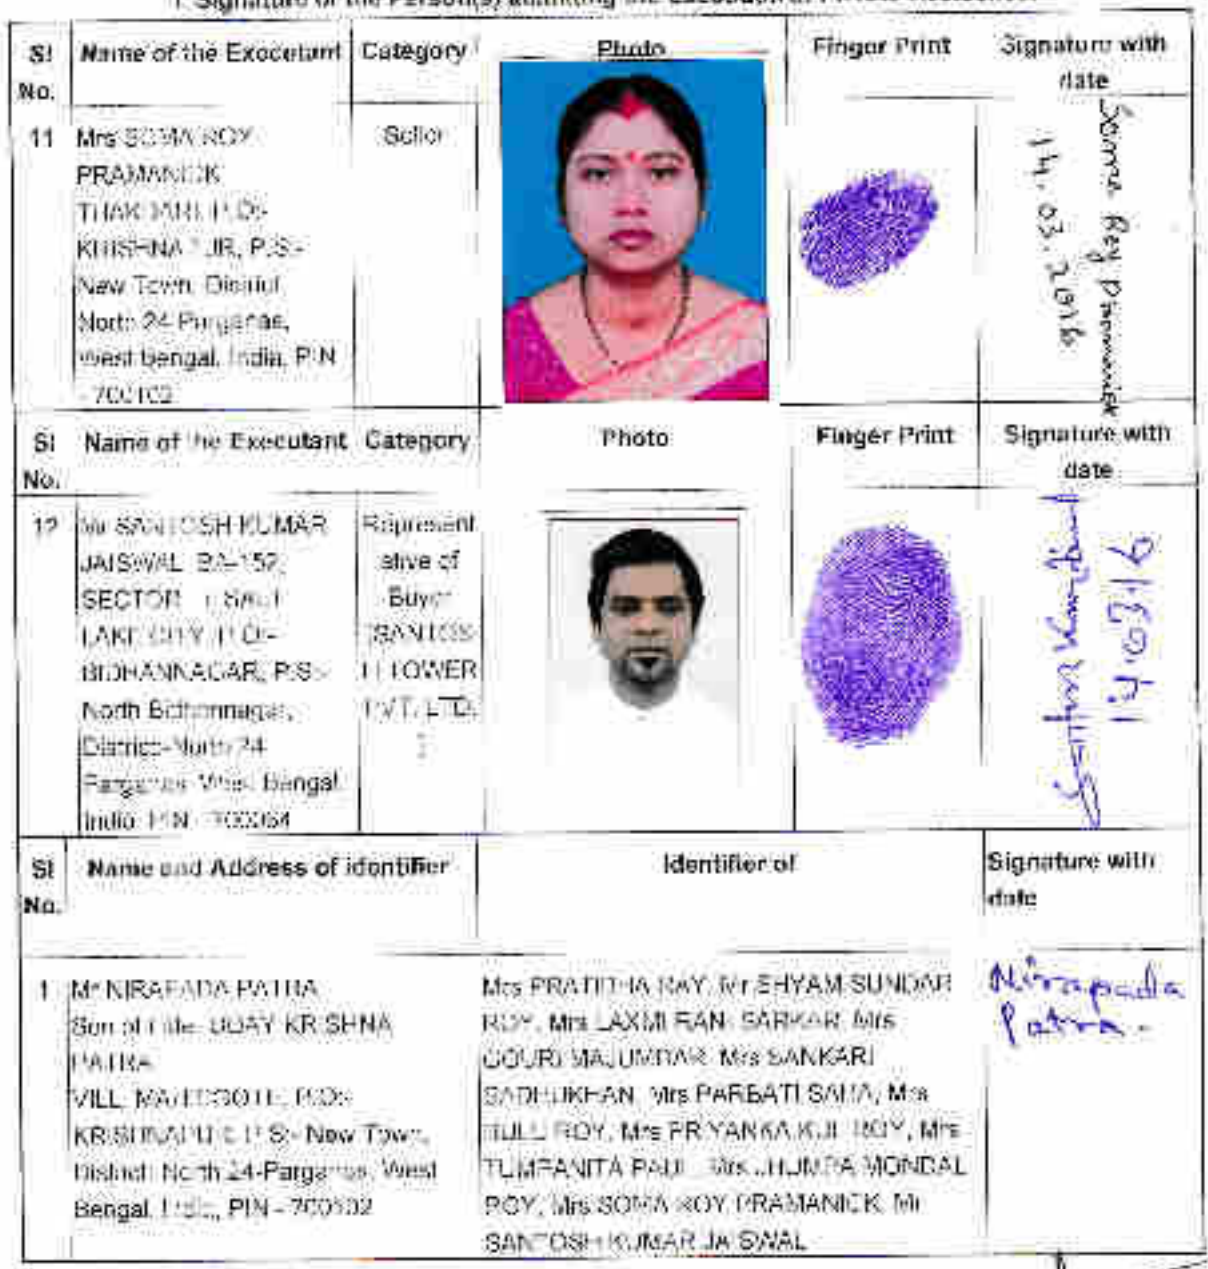 Signature of the Person(s) admitting the Execution at Private Residence.
Sl No.
Name of the Executant
Category
Photo
Finger Print
Signature with date
11
Mrs SOMA ROY
PRAMANICK
P.O:-
P.S:-
New Town, District
North 24-Parganas,
West Bengal, India, PIN
- 700102
Seller
Soma Roy Pramanick
14.03.2016
Sl No.
Name of the Executant
Category
Photo
Finger Print
Signature with date
12
Mr SANTOSH KUMAR
JAISWAL BA-152,
SECTOR SALT
LAKE CITY, P.O:-
BIDHANNAGAR, P.S:-
North Bidhannagar,
District-North 24
Parganas, West Bengal
India, PIN - 700064
Represent
ative of
Buyer
[SANTOS
H TOWER
PVT. LTD.
]
14.03.16
Sl No.
Name and Address of identifier
Identifier of
Signature with date
1
Mr NIRAPADA PATRA
Son of Late UDAY KRISHNA
PATRA
VILL P.O:-
P.S:- New Town,
District:-North 24-Parganas, West
Bengal, India, PIN - 700102
Mrs RAY, Mr SHYAM SUNDAR
ROY, Mrs LAXMI RANI SARKAR, Mrs
GOURI MAJUMDAR, Mrs SANKARI
SADHUKHAN, Mrs PARBATI SAHA, Mrs
ROY, Mrs PRIYANKA ROY, Mrs
PAUL, Mrs JHUMPA MONDAL
ROY, Mrs SOMA ROY PRAMANICK, Mr
SANTOSH KUMAR JAISWAL
Nirapada
Patra -